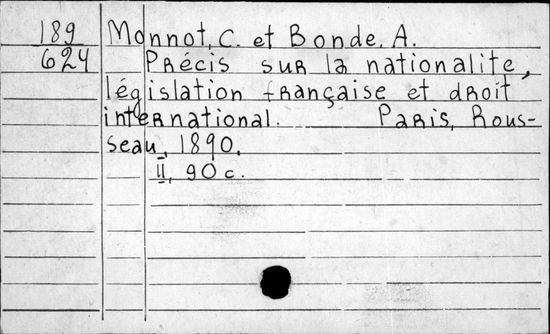 189 Monnot, C. et Bonde, A.
624 Précis sur la nationalite,
législation française et droit
international. Paris, Rous-
seau, 1890.
II, 90 c.